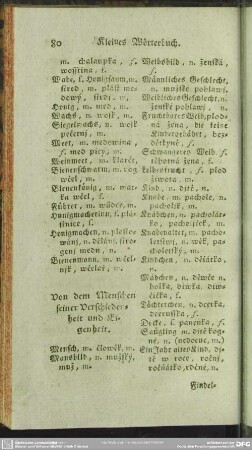 80 Kleines Wörterbuch.
m. chalaupka, f.
wostřina, f.
Wabe, f. Honigfaum, m.
m. plást
Honig, m. med, m.
Wachs, n. wosk, m.
Siegelwachs, n. wosk
pečetnj, m.
Meet, m. medowina,
f. med picý, m.
Weinmeet, m. klarét,
Bienenschwarm, m. rog
wčel, m.
Bienenkönig, m. mat-
ka wčel, f.
Führer, m. wůdce, m.
Honigmacherinn, f.
Honigmachen, n.
n. dělánj,
medu, n.
Bienenmann, m. wčel-
njk, wčelař, m.
Von dem Menschen
seiner Verschieden-
heit und Ei-
genheit.
Mensch, m. člowěk, m.
Mansbild, n. mužský,
muž, m.
Weibsbild, n. ženská,
f.
Männliches Geschlecht,
n. mužské pohlawj.
Weibliches Geschlecht, n.
ženské pohlawj, n.
Fruchtbares Weib, plod-
ná žena, die keine
Kinder gebährt, bez-
dětkyně, f.
Schwangeres Weib, f.
těhotná žena, f.
Leibesfrucht, f. plod
žiwota, m.
Kind, n. djtě, n.
Knabe, m. pachole, n.
pacholjk, m.
Knäbchen, n. pacholát-
ko, pacholjček, m.
Knabenalter, n. pacho-
letstwj, n. wěk, pa-
choletský, m.
Kindchen, n. děťátko,
n.
Mädchen, n. děwče n.
holka, djwka, djw-
čička, f.
Töchterchen, n. dcerka,
dceruška, f.
Docke, f. panenka, f.
Säugling m. djtě kog-
né, n. (nedocue, m.)
Ein Jahr altes Kind, dj-
tě w roce, ročnj,
ročňátko, n.
Findel-